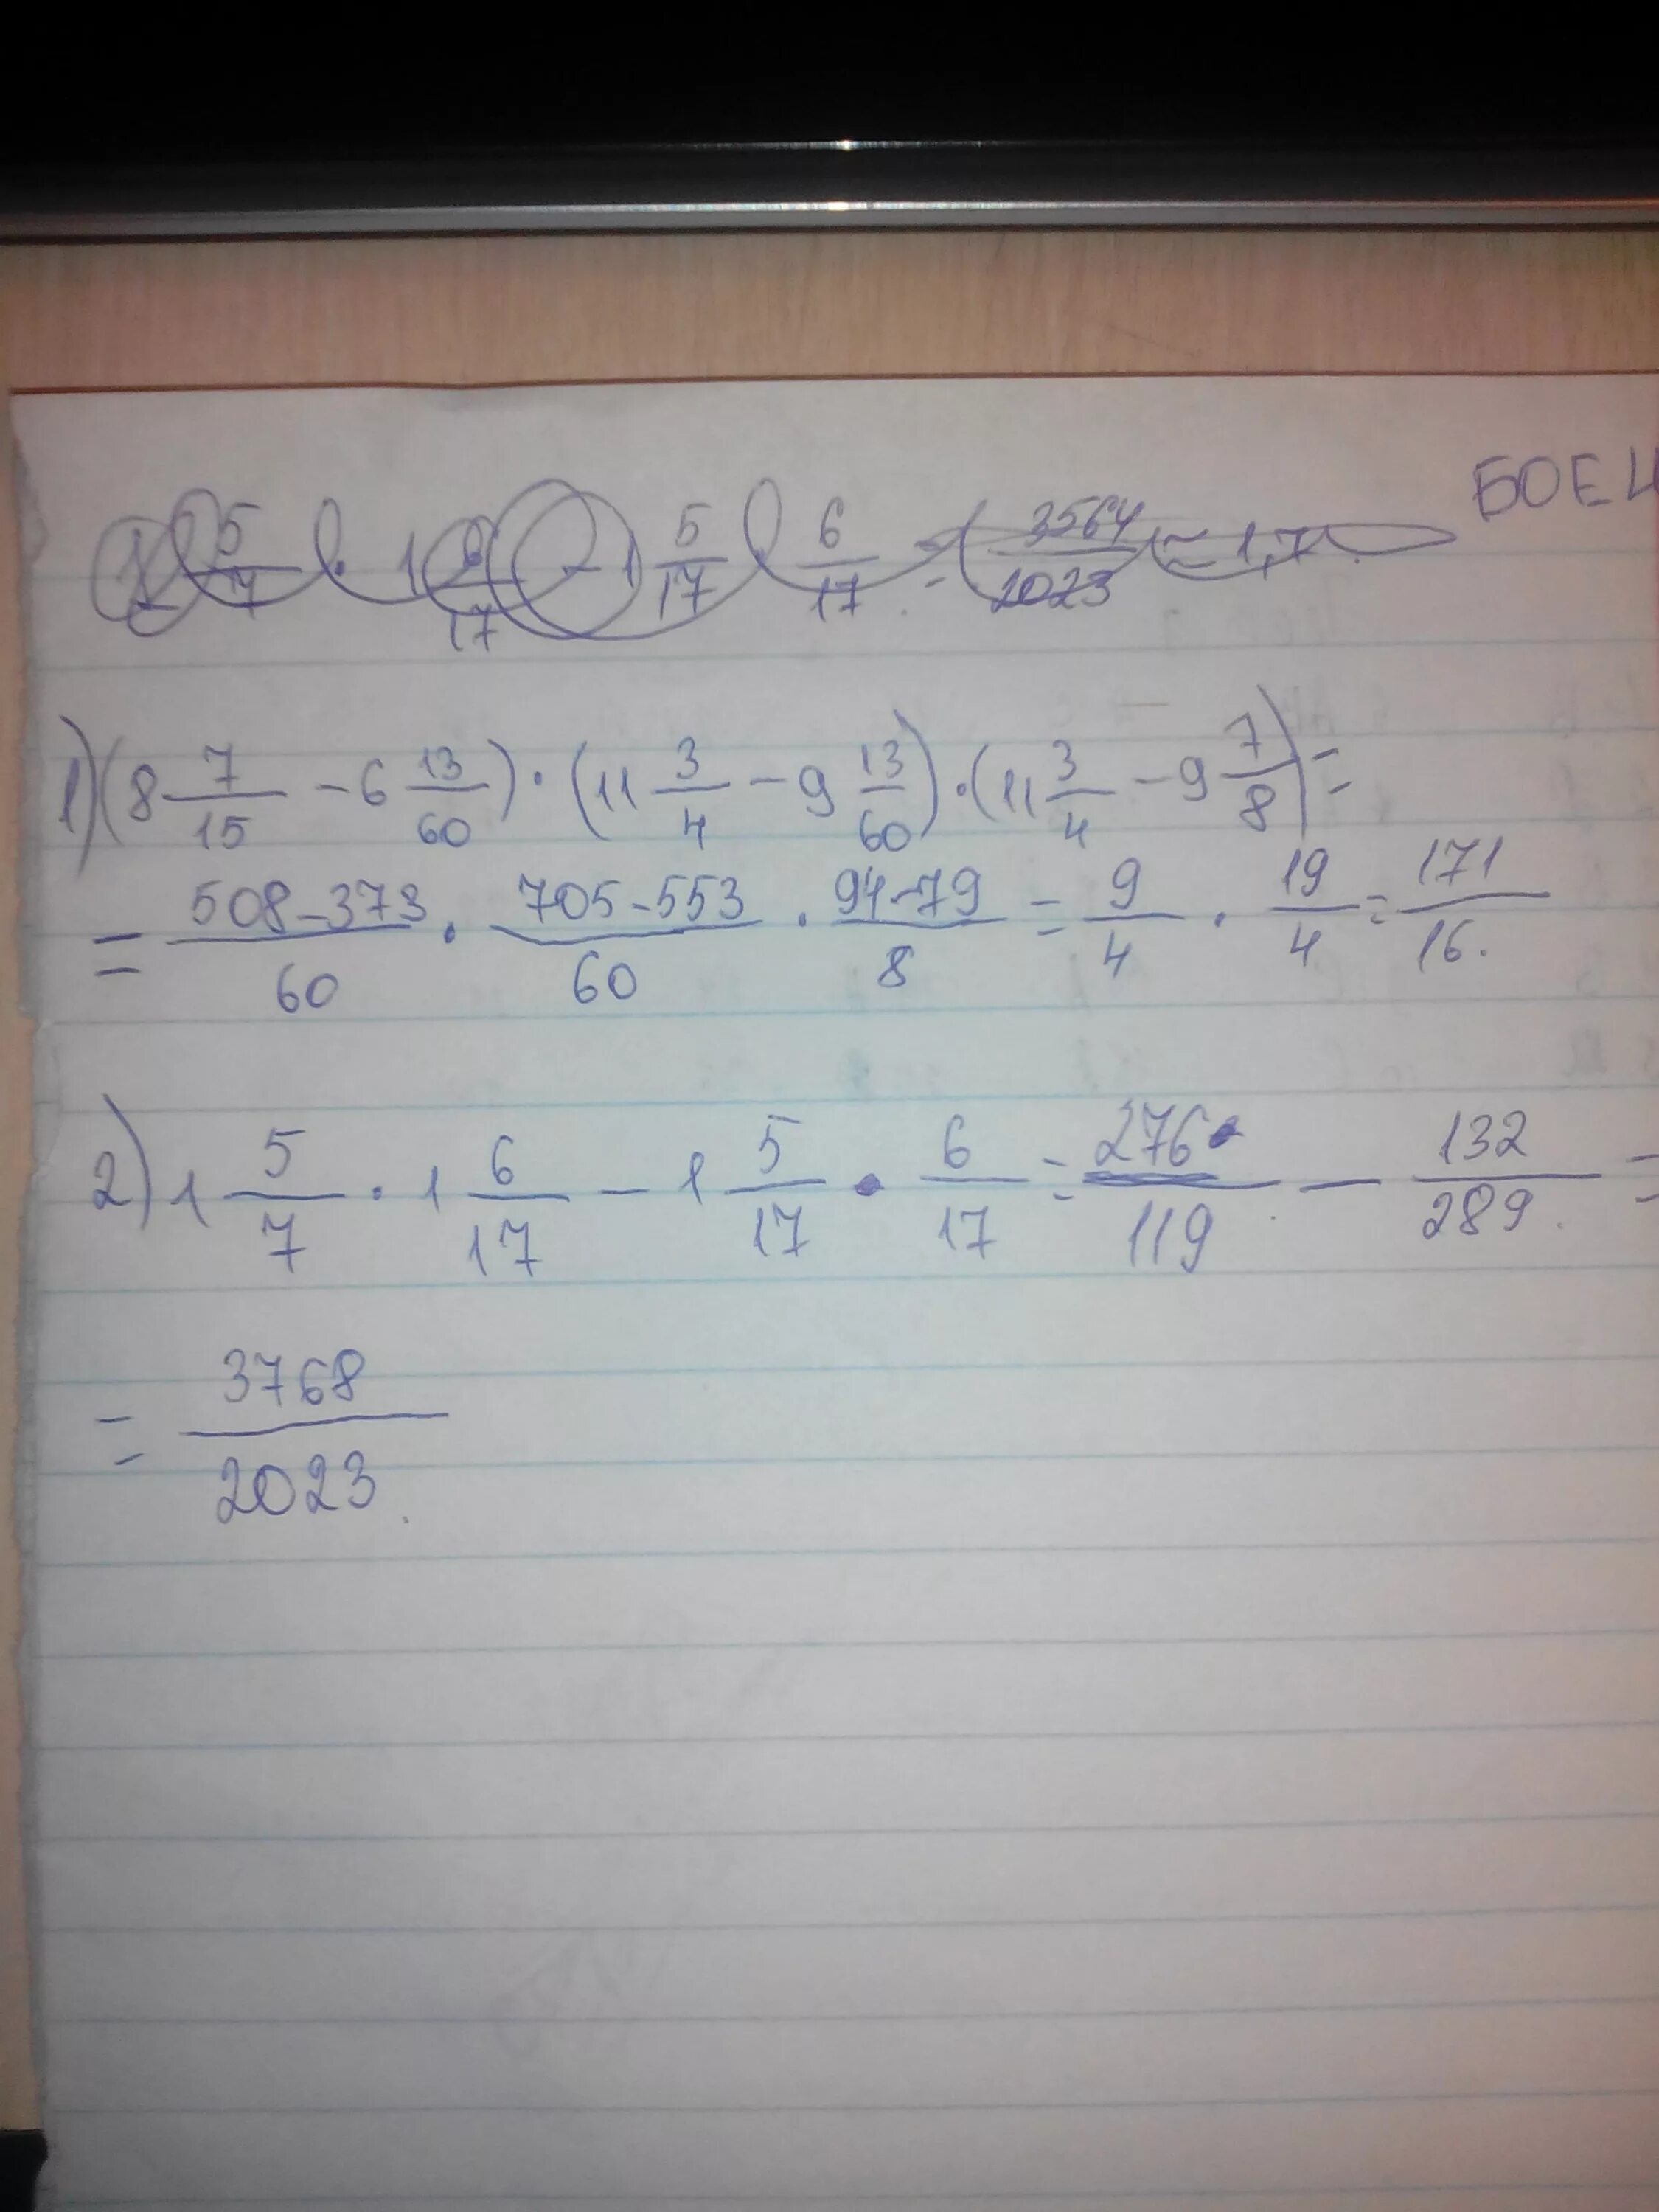 БОЕЦ
5/7 · 1 6/17 - 1 5/17 · 6/17 = 3564/2023 ≈ 1,7
1) (8 7/15 - 6 13/60) · (11 3/4 - 9 13/60) · (11 3/4 - 9 7/8) =
= 508-373/60 · 705-553/60 · 94-79/8 = 9/4 · 19/4 = 171/16.
2) 1 5/7 · 1 6/17 - 1 5/17 · 6/17 = 276/119 - 132/289 =
= 3768/2023.